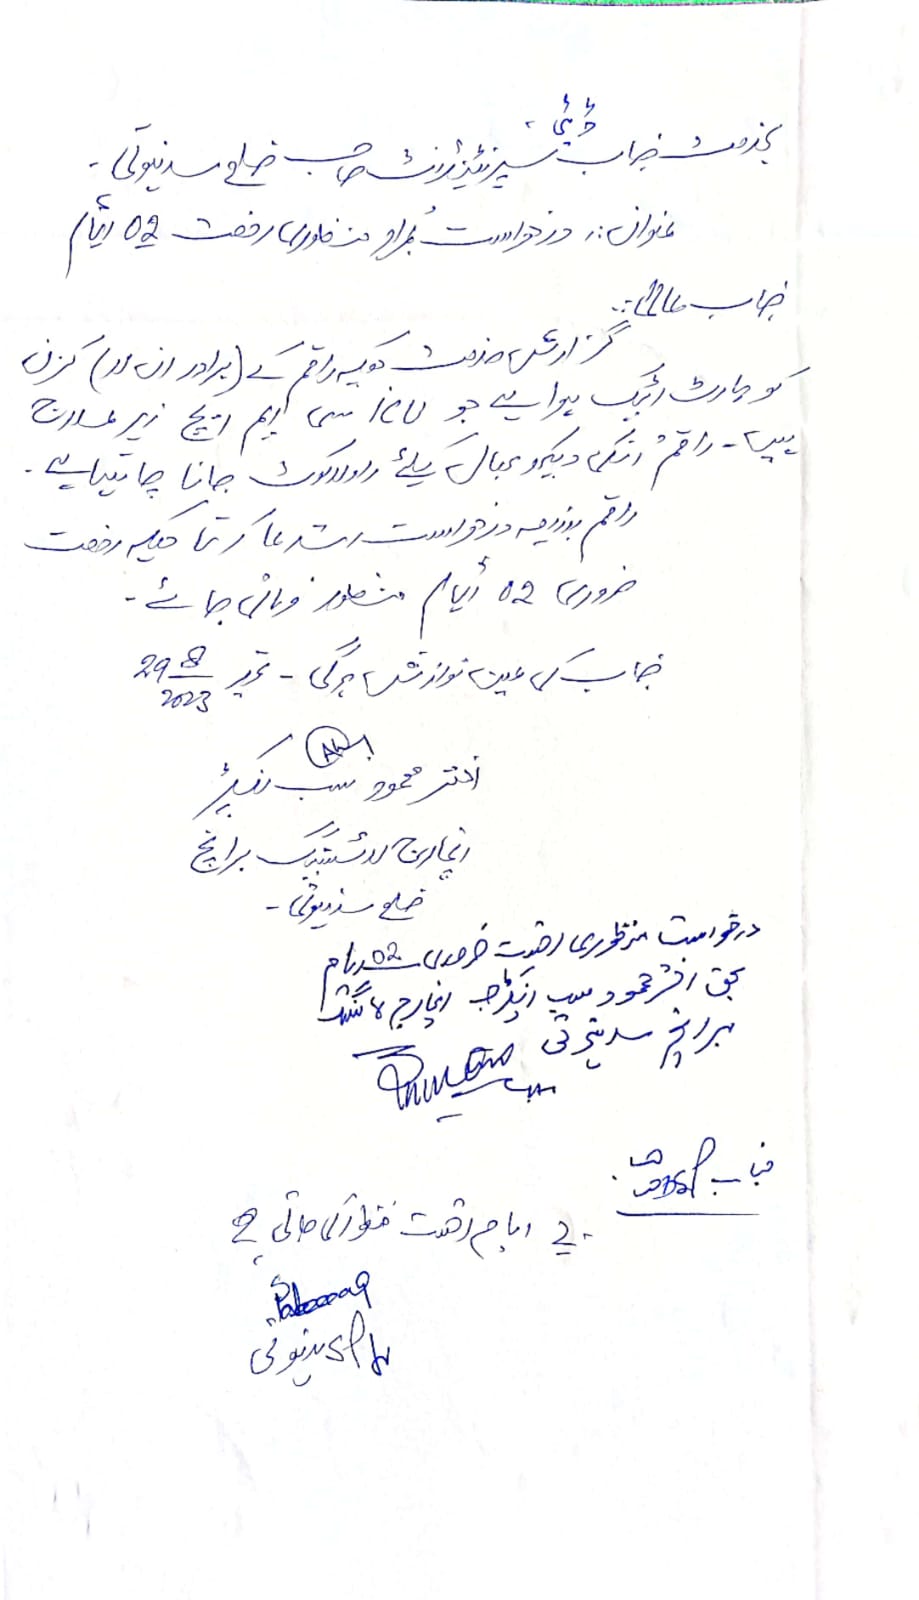 بخدمت جناب ڈپٹی سپرنٹنڈنٹ صاحب ضلع سدنوتی -
عنوان :۔ درخواست بمراد منظوری رخصت 02 ایام
جناب عالی :۔
گزارش خدمت ہیکہ راقم کے (برادر ان لاء) کزن
کو ہارٹ اٹیک ہوا ہے جو ICU سی ایم ایچ زیر علاج
ہیں - راقم انکی دیکھ بھال کیلئے راولاکوٹ جانا چاہتا ہے -
راقم بذریعہ درخواست استدعا کرتا ہیکہ رخصت
ضروری 02 ایام منظور فرمائی جائے -
جناب کی عین نوازش ہوگی - تحریر 29 8/2023
اختر محمود سب انسپکٹر
انچارج برانچ
ضلع سدنوتی -
درخواست منظوری رخصت ضروری 02 ایام
بحق اختر محمود سب انسپکٹر انچارج
برانچ سدنوتی
جناب DSP صاحب
2 ایام رخصت منظور کی جاتی ہے
SP سدنوتی